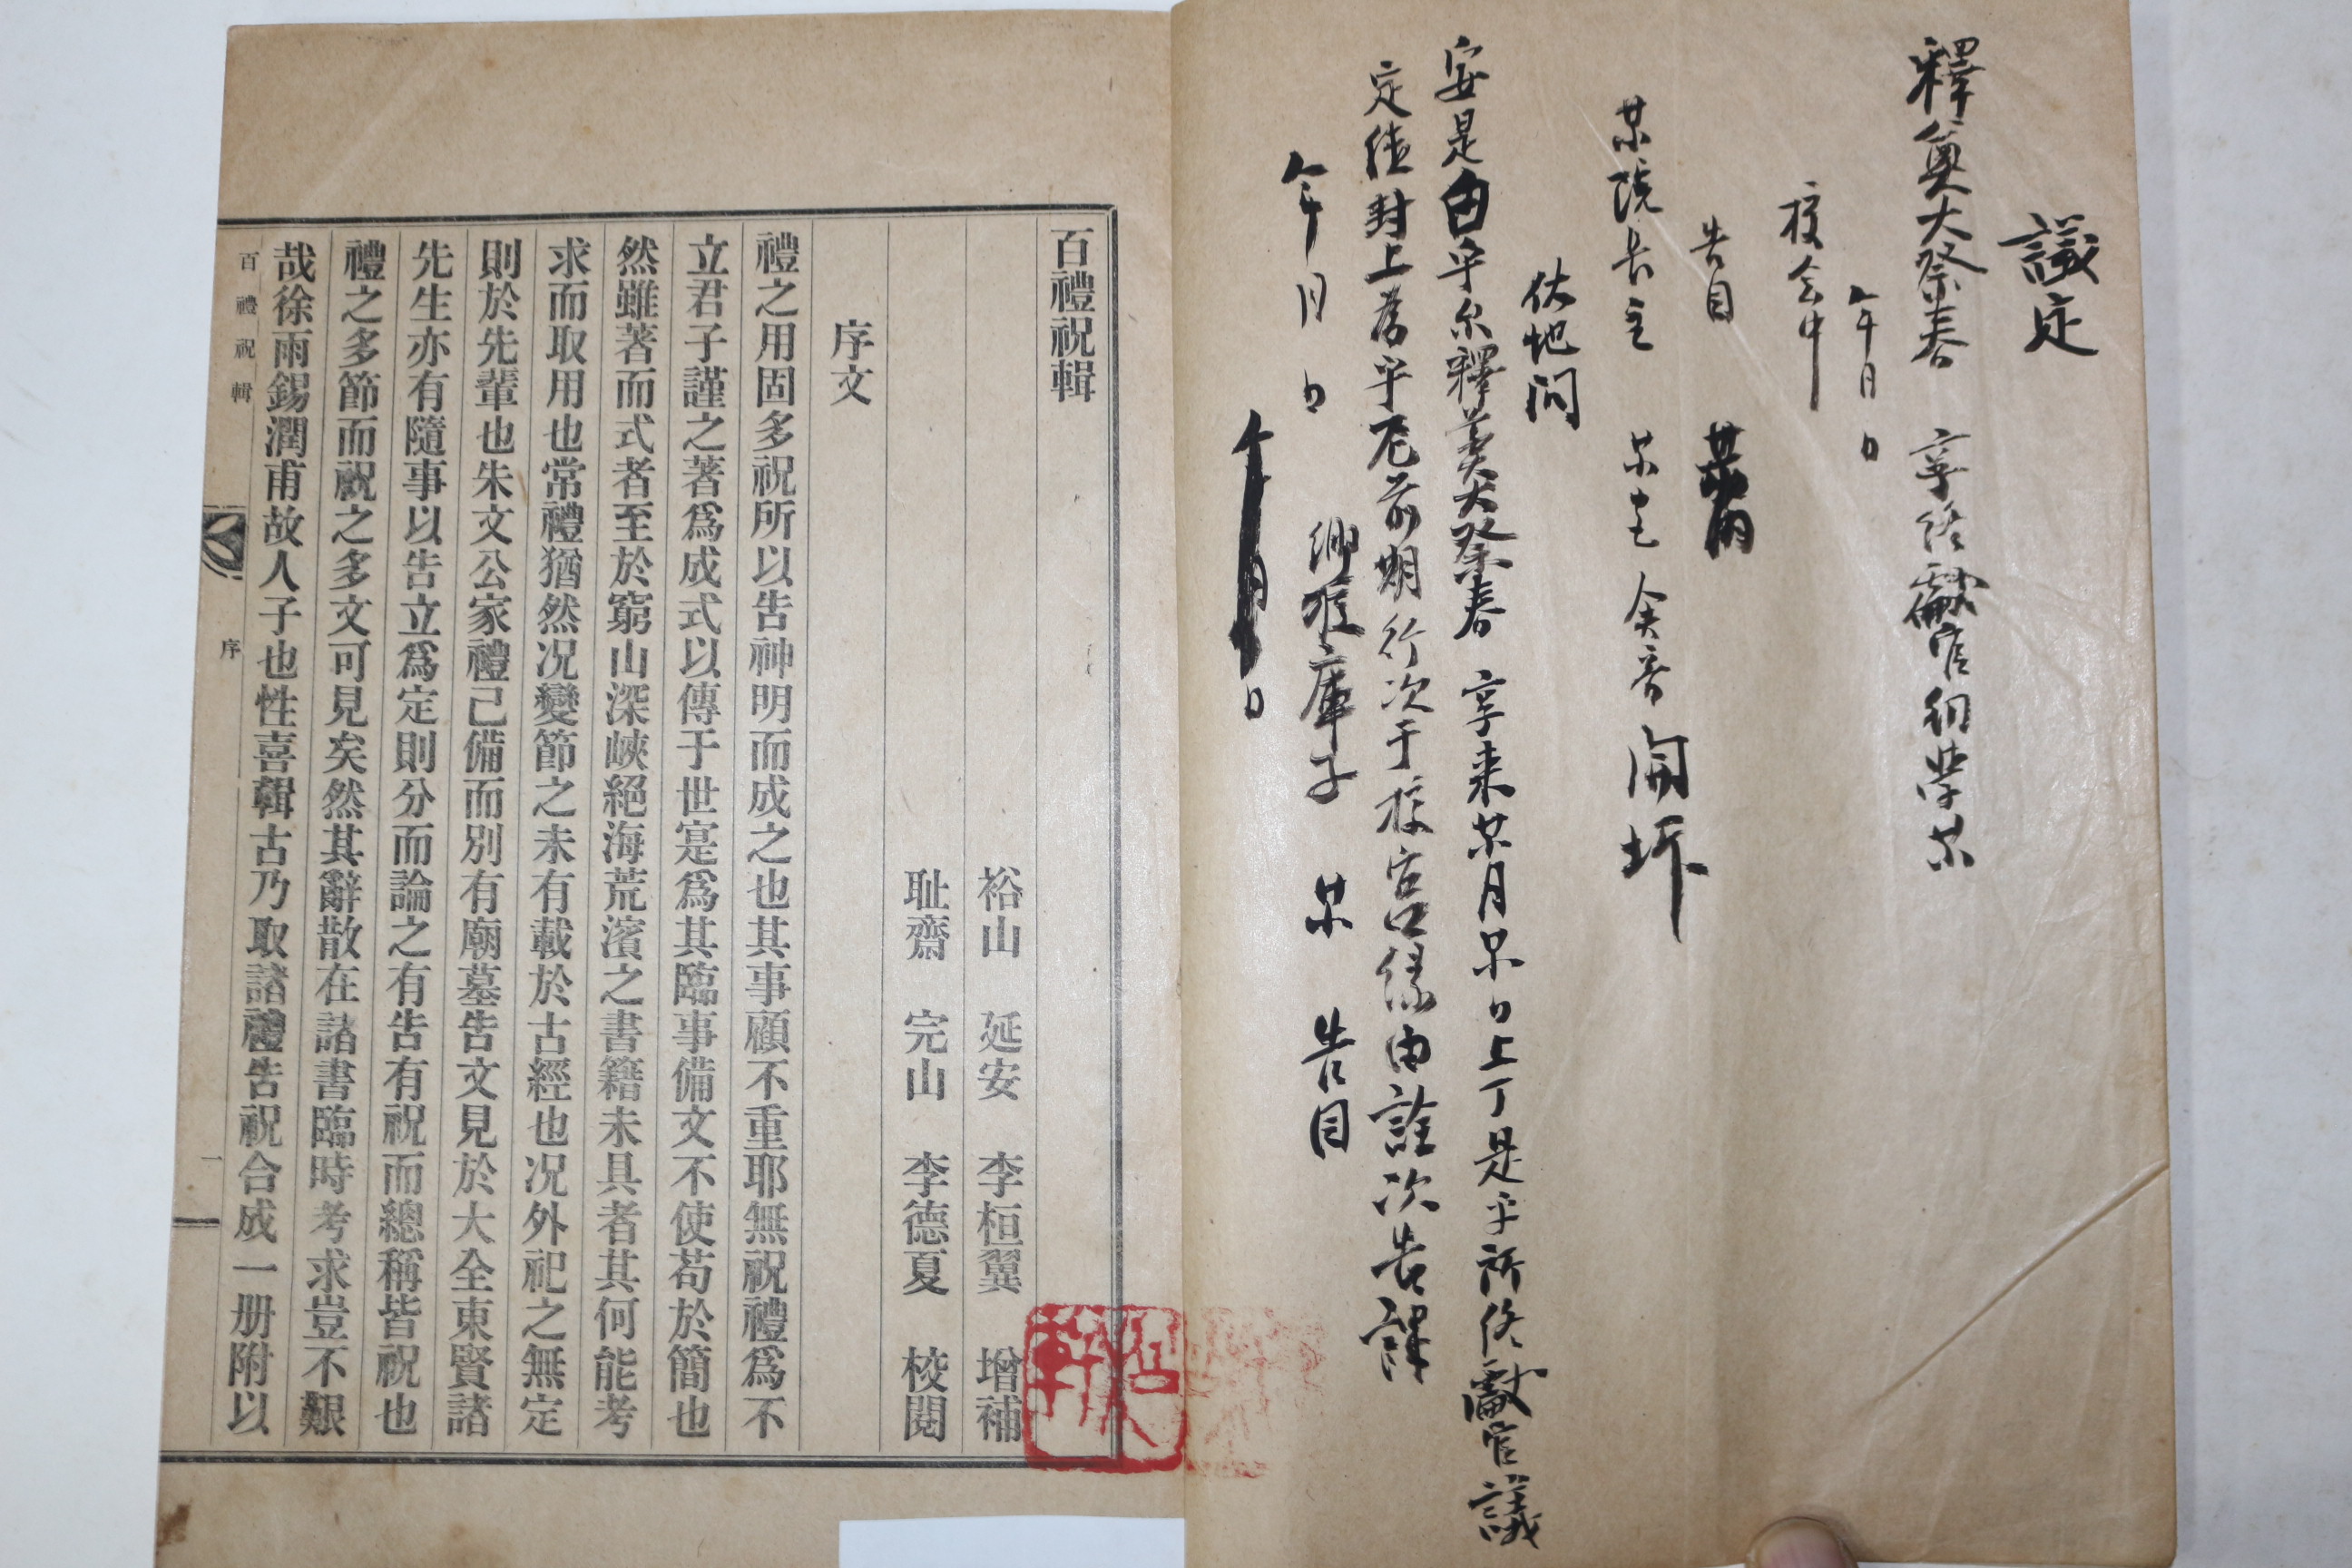 議定
釋奠大祭春 享終獻官 幼學某
年 月 日
校會中
告目
某院長主 某宅 入 開坼
伏地問
安是白乎尒釋奠大祭春 享來某月某日上丁是乎所終獻官議
定 封上爲乎尼前期行次于校宮緣由詮次告課
年 月 日 鄕校庫子 某 告目
百禮祝輯
裕山 延安 李桓翼 增補
耻齋 完山 李德夏 校閱
序文
禮之用固多祝所以告神明而成之也其事顧不重耶無祝禮爲不
立君子謹之著爲成式以傳于世寔爲其臨事備文不使苟於簡也
然雖著而式者至於窮山深峽絕海荒濱之書籍未具者其何能考
求而取用也常禮猶然况變節之未有載於古經也况外祀之無定
則於先輩也朱文公家禮己備而別有廟墓告文見於大全東賢諸
先生亦有隨事以告立爲定則分而論之有告有祝而總稱皆祝也
禮之多節而祝之多文可見矣然其辭散在諸書臨時考求豈不艱
哉徐雨錫潤甫故人子也性喜輯古乃取諸禮告祝合成一册附以
百禮祝輯 序 一